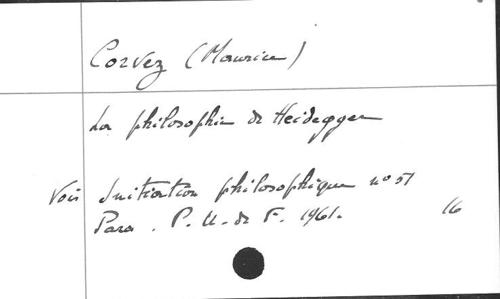 Corvez (Maurice)
La philosophie de Heidegger
Voir Initiation philosophique n° 51
Paris. P.U. de F. 1961.
16